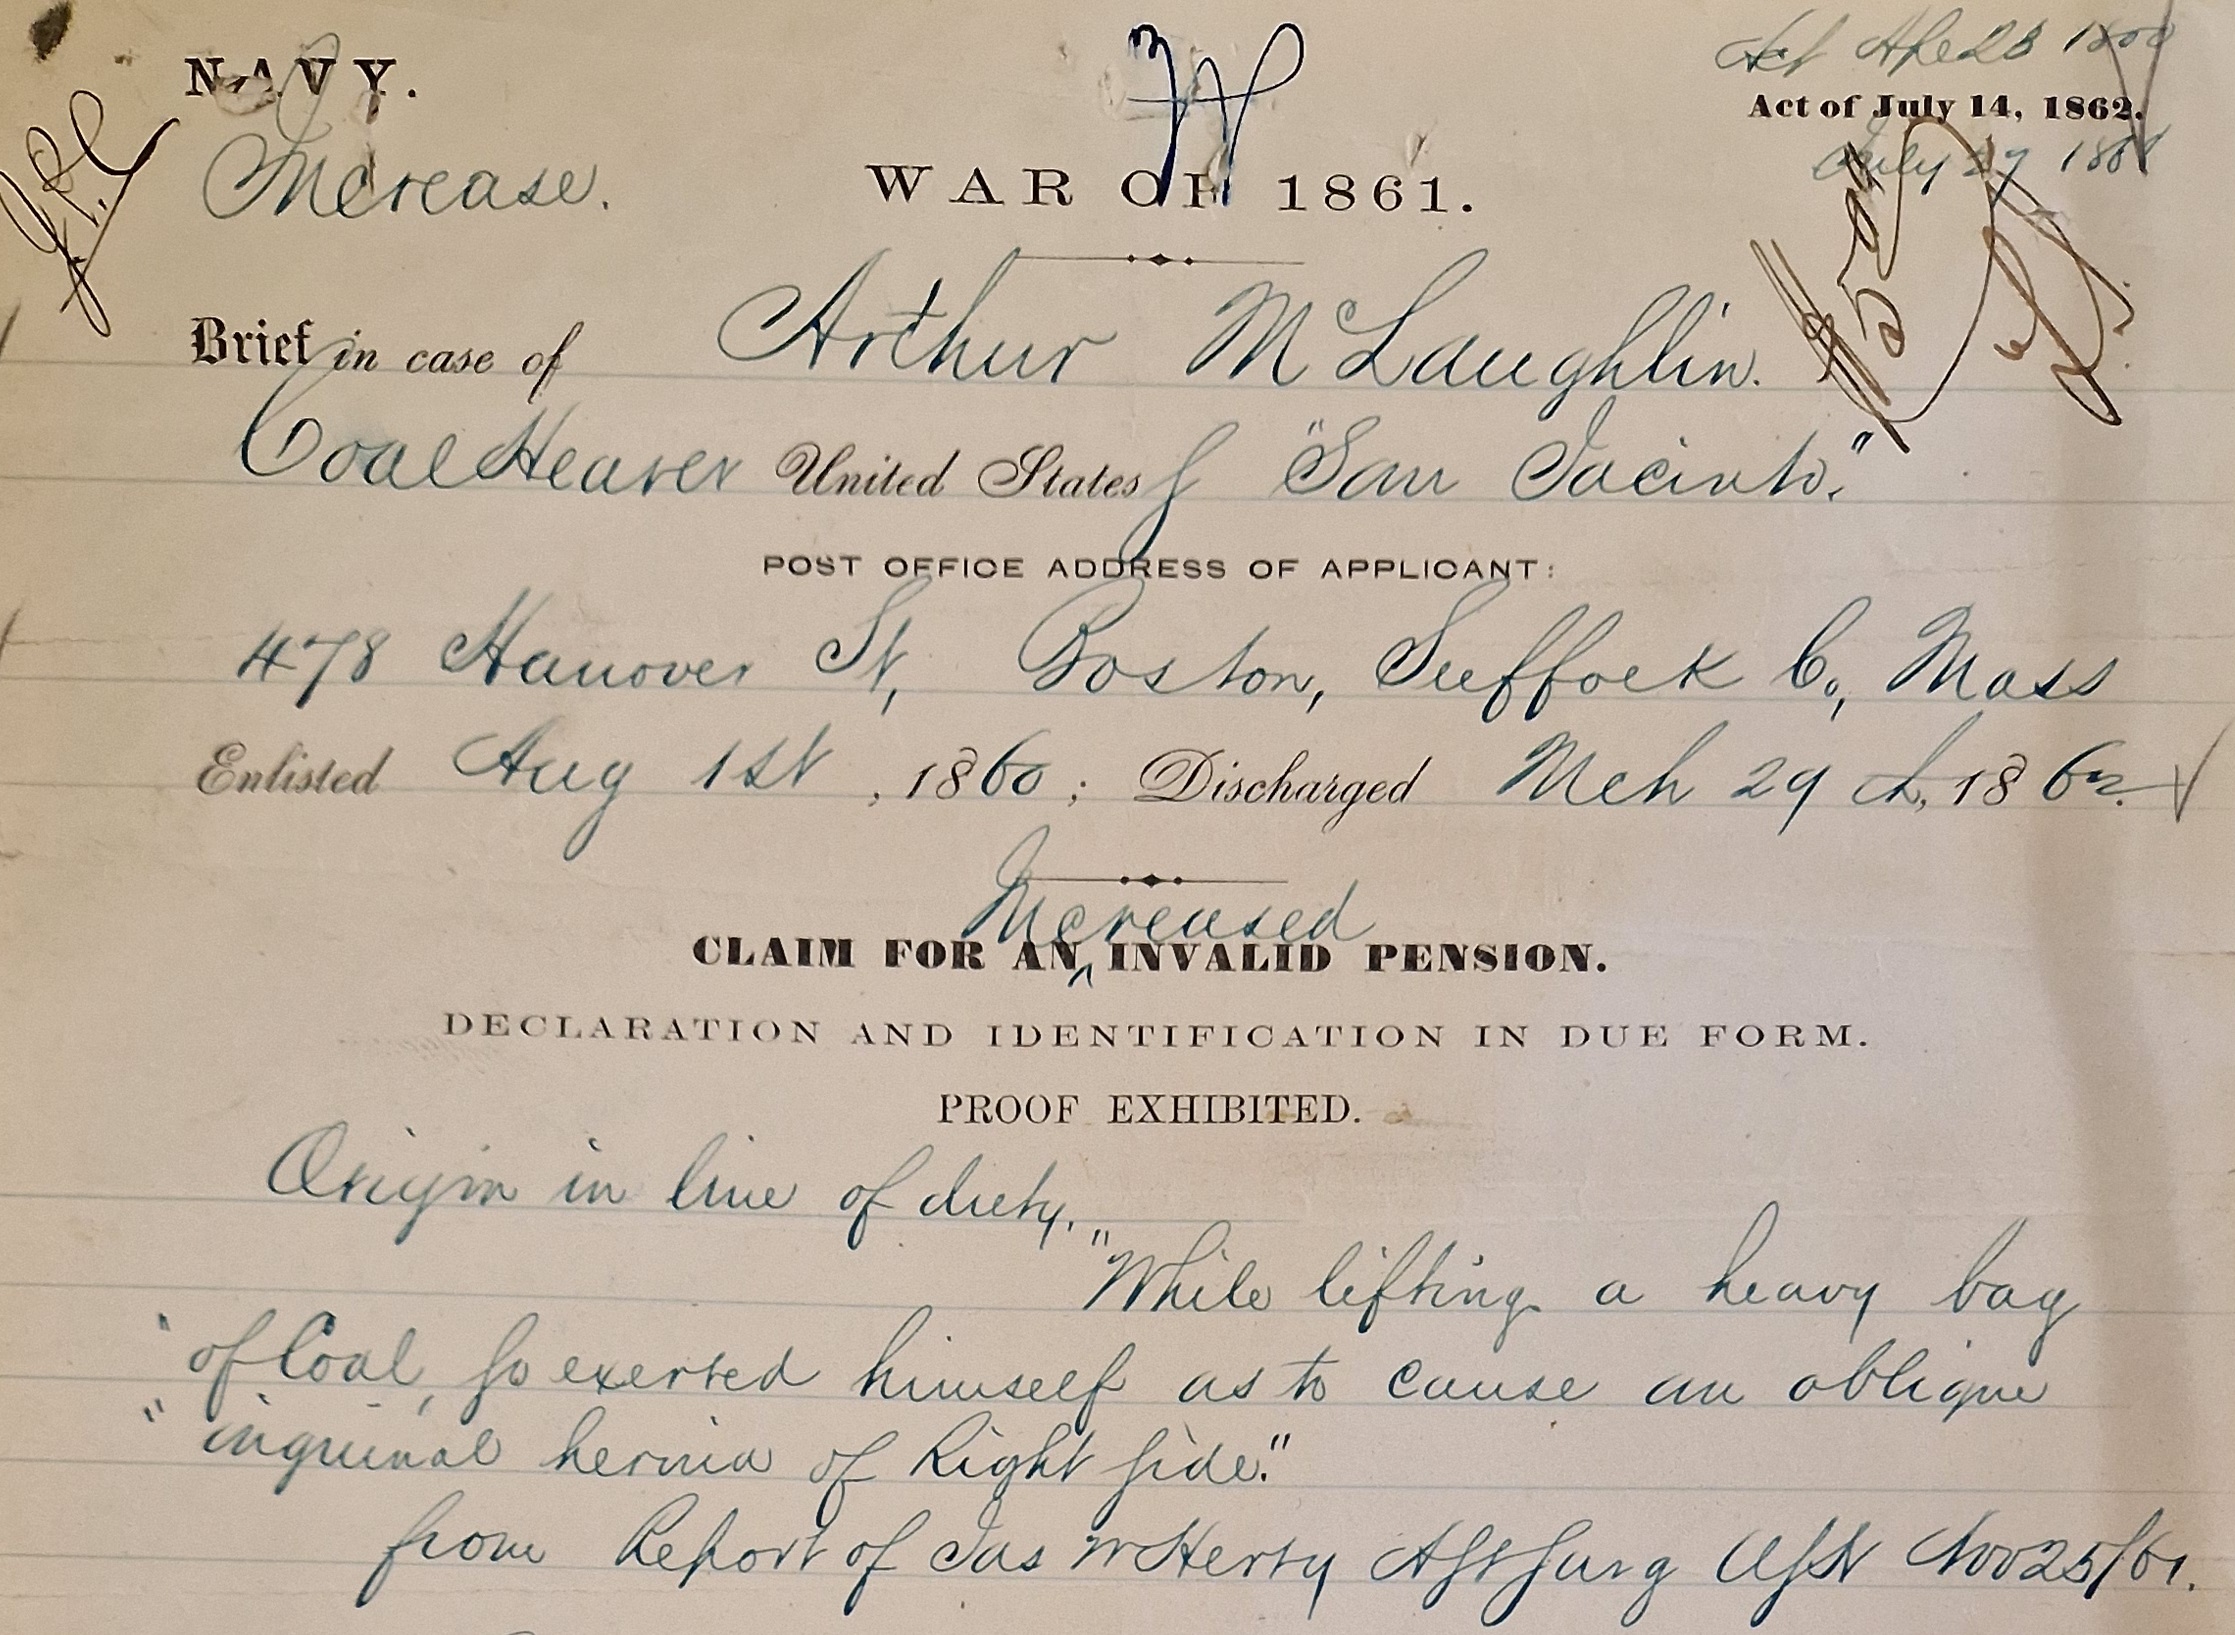 NAVY.
Increase.
Act of July 14, 1862.
July 27 1868
WAR OF 1861.
Brief in case of Arthur McLaughlin.
Coal Heaver United States S "San Jacinto."
POST OFFICE ADDRESS OF APPLICANT:
478 Hanover St, Boston, Suffolk Co, Mass
Enlisted Aug 1st, 1860; Discharged Mch 29th, 1862.
Increased
CLAIM FOR AN ^ INVALID PENSION.
DECLARATION AND IDENTIFICATION IN DUE FORM.
PROOF EXHIBITED.
Origin in line of duty.
"While lifting a heavy bag
" of Coal, so exerted himself as to cause an oblique
" inguinal hernia of Right side."
from Report of Jas Asst Surg USN Nov 25/61.